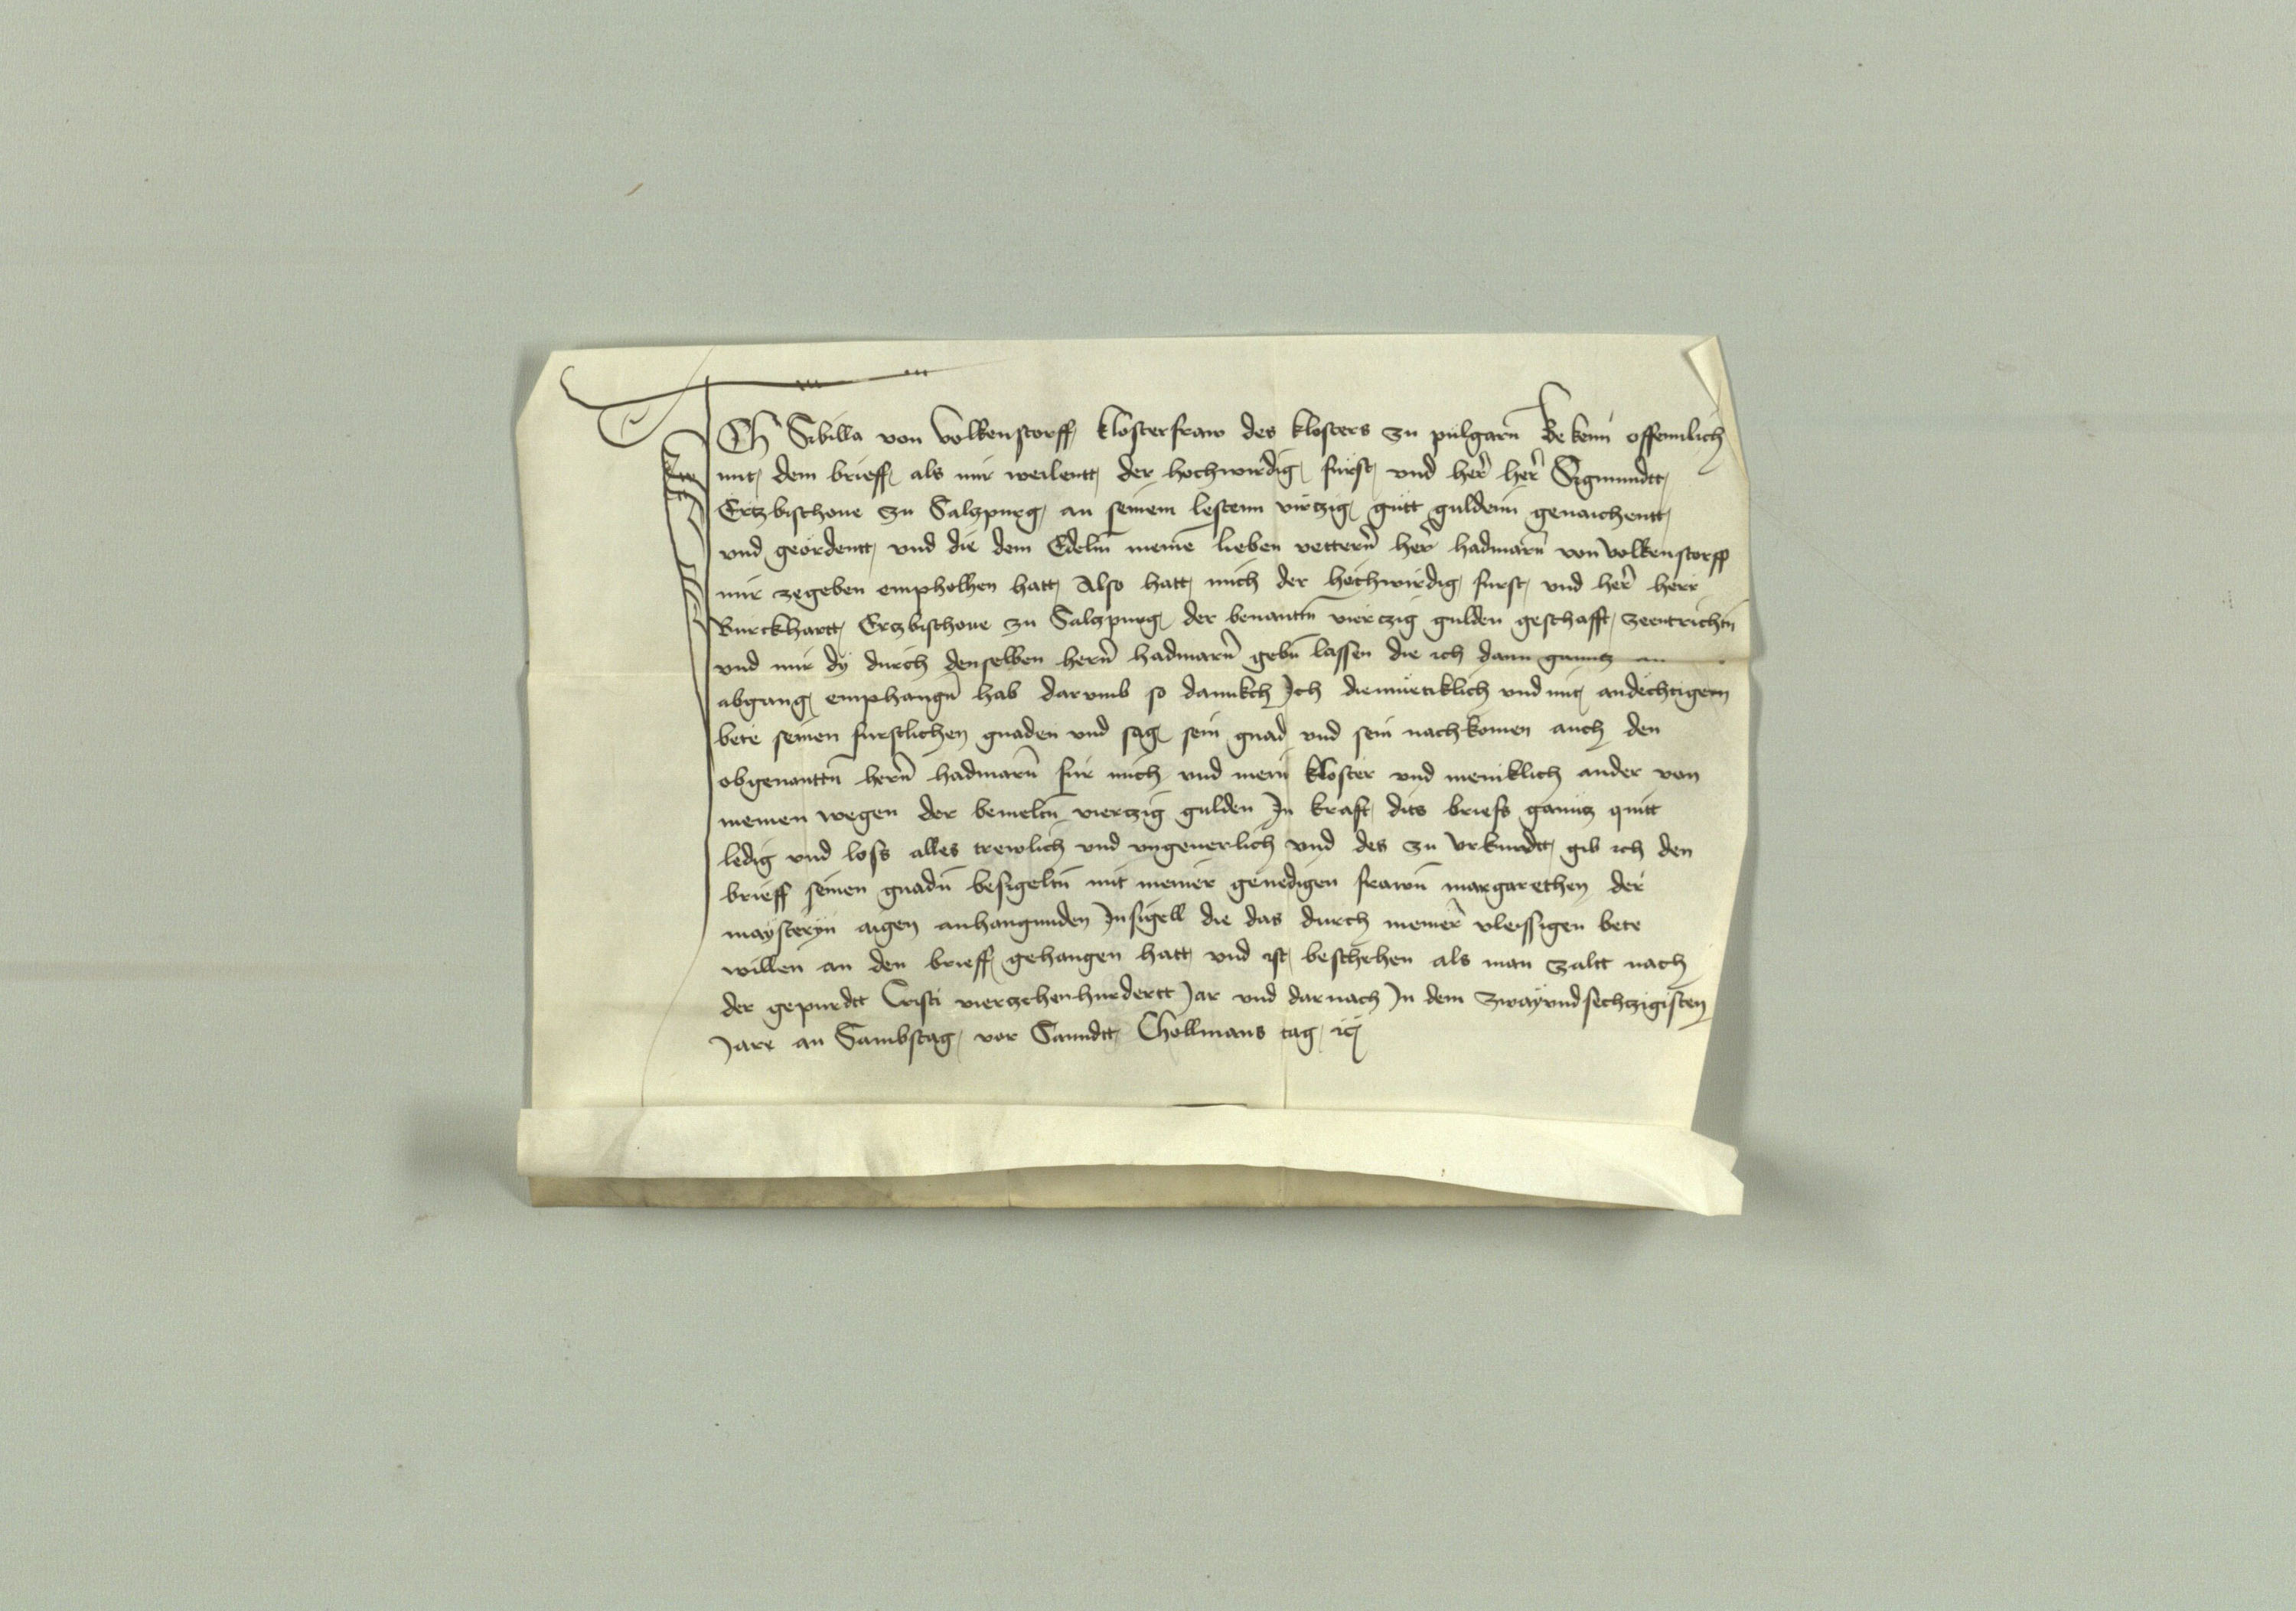 Ich Sibilla von Volkenstorff klosterfraw des klosters zu pulgarn Bekenn offennlich
mit dem brieff als mir weilentt der hochwirdig furst und her̄ her̄ Sigmundtt
Ertzbischoue zu Salzpurg an seinem lestenn virtzig gutt guldein genaichentt
und geordentt und die dem Edelm̄ meine lieben vettern̄ her̄ hadmarn̄ von Volkenstorff
mir zegeben empholhen hatt Also hatt mich der hochwirdig furst und her̄ herr
Burckhartt Ertzbischoue zu Salzpurg der benanttn̄ vierczig gulden geschafft zeentrichtn̄
und mir dy durch denselben hern̄ hadmarn̄ gebn̄ lassen die ich dann ganntz an
abgang emphangn̄ hab darumb so dannkch Ich diemuetiklich und mit andechtigem
bete seinen furstlichen gnaden und sag sein gnad und sein nachkomen auch den
obgenanttn̄ hern̄ hadmarn̄ fur mich und mein kloster und meniklich ander von
meinen wegen der bemeltn̄ vierczig gulden In kraft dits briefs ganntz quitt
ledig und loss alles trewlich und ungeuerlich und des zu Urkundtt gib ich den
brieff seinen gnadn̄ besigeltn̄ mit meiner genedigen frawn̄ margarethen der
maysteryn aigen anhangunden Insigell die das durch meiner vleissigen bete
willen an den brieff gehangen hatt und ist beschehen als man zaltt nach
der gepurdtt Cristi vierzehenhundertt Jar und darnach In dem zwayundsechzigisten
Jare an Sambstag vor Sanndtt Chollmans tag